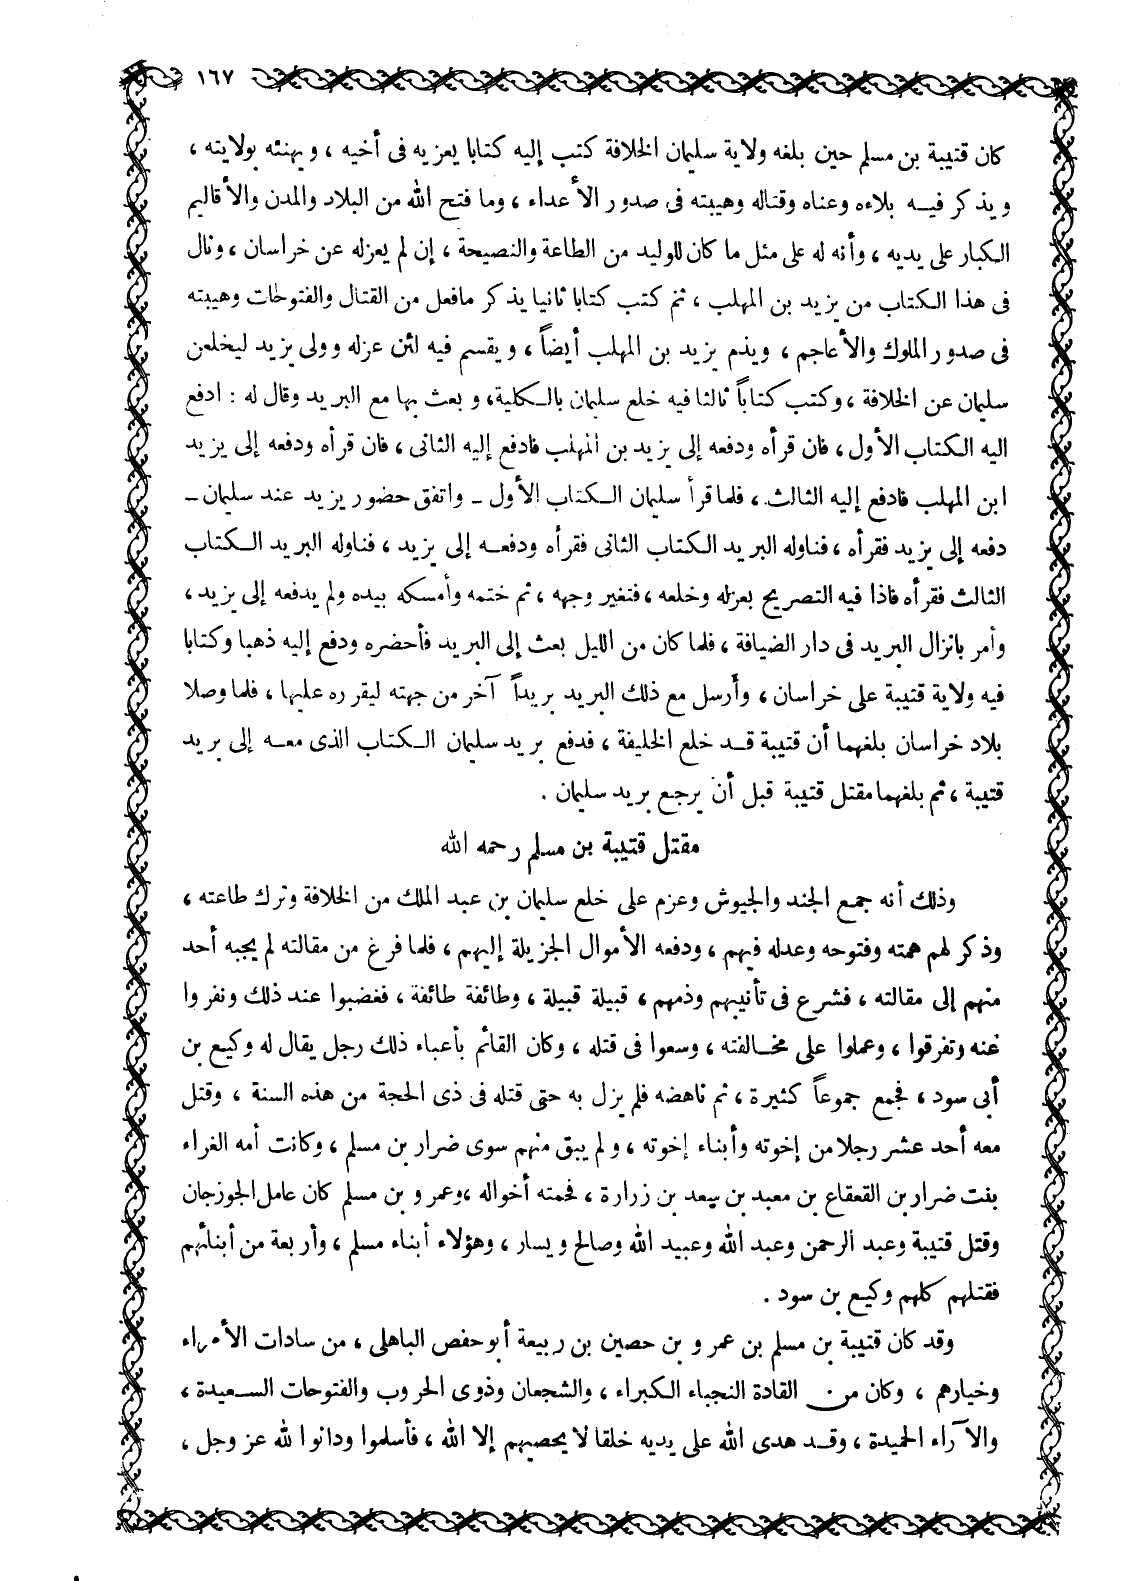 ١٦٧
كان قتيبة بن مسلم حين بلغه ولاية سليمان الخلافة كتب إليه كتابا يعزيه فى أخيه ، ويهنئه بولايته ،
ويذكر فيه بلاءه وعناه وقتاله وهيبته فى صدور الأعداء ، وما فتح الله من البلاد والمدن والأقاليم
الكبار على يديه ، وأنه له على مثل ما كان للوليد من الطاعة والنصيحة ، إن لم يعزله عن خراسان ، ونال
فى هذا الكتاب من يزيد بن المهلب ، ثم كتب كتابا ثانيا يذكر مافعل من القتال والفتوحات وهيبته
فى صدور الملوك والأعاجم ، ويذم يزيد بن المهلب أيضاً ، ويقسم فيه لئن عزله وولى يزيد ليخلعن
سليمان عن الخلافة ، وكتب كتاباً ثالثا فيه خلع سليمان بالكلية ، وبعث بها مع البريد وقال له : ادفع
اليه الكتاب الأول ، فان قرأه ودفعه إلى يزيد بن المهلب فادفع إليه الثانى ، فان قرأه ودفعه إلى يزيد
ابن المهلب فادفع إليه الثالث . فلما قرأ سليمان الكتاب الأول - واتفق حضور يزيد عند سليمان -
دفعه إلى يزيد فقرأه ، فناوله البريد الكتاب الثانى فقرأه ودفعه إلى يزيد ، فناوله البريد الكتاب
الثالث فقرأه فاذا فيه التصريح بعزله وخلعه ، فتغير وجهه ، ثم ختمه وأمسكه بيده ولم يدفعه إلى يزيد ،
وأمر بانزال البريد فى دار الضيافة ، فلما كان من الليل بعث إلى البريد فأحضره ودفع إليه ذهبا وكتابا
فيه ولاية قتيبة على خراسان ، وأرسل مع ذلك البريد بريداً آخر من جهته ليقرره عليها ، فلما وصلا
بلاد خراسان بلغهما أن قتيبة قد خلع الخليفة ، فدفع بريد سليمان الكتاب الذى معه إلى بريد
قتيبة ، ثم بلغهما مقتل قتيبة قبل أن يرجع بريد سليمان .
مقتل قتيبة بن مسلم رحمه الله
وذلك أنه جمع الجند والجيوش وعزم على خلع سليمان بن عبد الملك من الخلافة وترك طاعته ،
وذكر لهم همته وفتوحه وعدله فيهم ، ودفعه الأموال الجزيلة إليهم ، فلما فرغ من مقالته لم يجبه أحد
منهم إلى مقالته ، فشرع فى تأنيبهم وذمهم ، قبيلة قبيلة ، وطائفة طائفة ، فغضبوا عند ذلك ونفروا
عنه وتفرقوا ، وعملوا على مخالفته ، وسعوا فى قتله ، وكان القائم بأعباء ذلك رجل يقال له وكيع بن
أبى سود ، فجمع جموعاً كثيرة ، ثم ناهضه فلم يزل به حتى قتله فى ذى الحجة من هذه السنة ، وقتل
معه أحد عشر رجلا من إخوته وأبناء إخوته ، ولم يبق منهم سوى ضرار بن مسلم ، وكانت أمه الغراء
بنت ضرار بن القعقاع بن معبد بن سعد بن زرارة ، فحمته أخواله ، وعمرو بن مسلم كان عامل الجوزجان
وقتل قتيبة وعبد الرحمن وعبد الله وعبيد الله وصالح ويسار ، وهؤلاء أبناء مسلم ، وأربعة من أبنائهم
فقتلهم كلهم وكيع بن سود .
وقد كان قتيبة بن مسلم بن عمرو بن حصين بن ربيعة أبو حفص الباهلى ، من سادات الأمراء
وخيارهم ، وكان من القادة النجباء الكبراء ، والشجعان وذوى الحروب والفتوحات السعيدة ،
والآراء الحميدة ، وقد هدى الله على يديه خلقا لا يحصيهم إلا الله ، فأسلموا ودانوا لله عز وجل ،